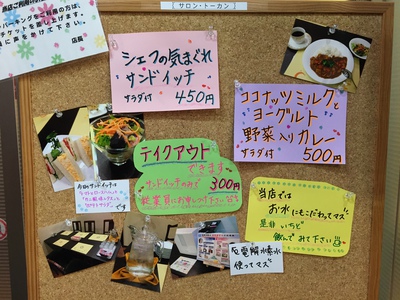 [サロン・トーカン]
パーキングをご利用の方は、
店長
シェフの気まぐれ
サンドイッチ
サラダ付 450円
ココナッツミルクと
ヨーグルト
野菜入りカレー
サラダ付 500円
テイクアウト
できます
サンドイッチのみで 300円
今日のサンドイッチは
です
当店では
お水にもこだわってマス
是非いちど
飲んでみて下さい
反電解水素水
使ってマス